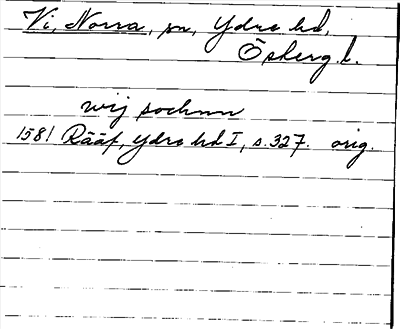 Vi, Norra, sn, Ydre hd,
Östergl.
wij sochnn
1581 Rääf, Ydre hd I, s. 327. orig.